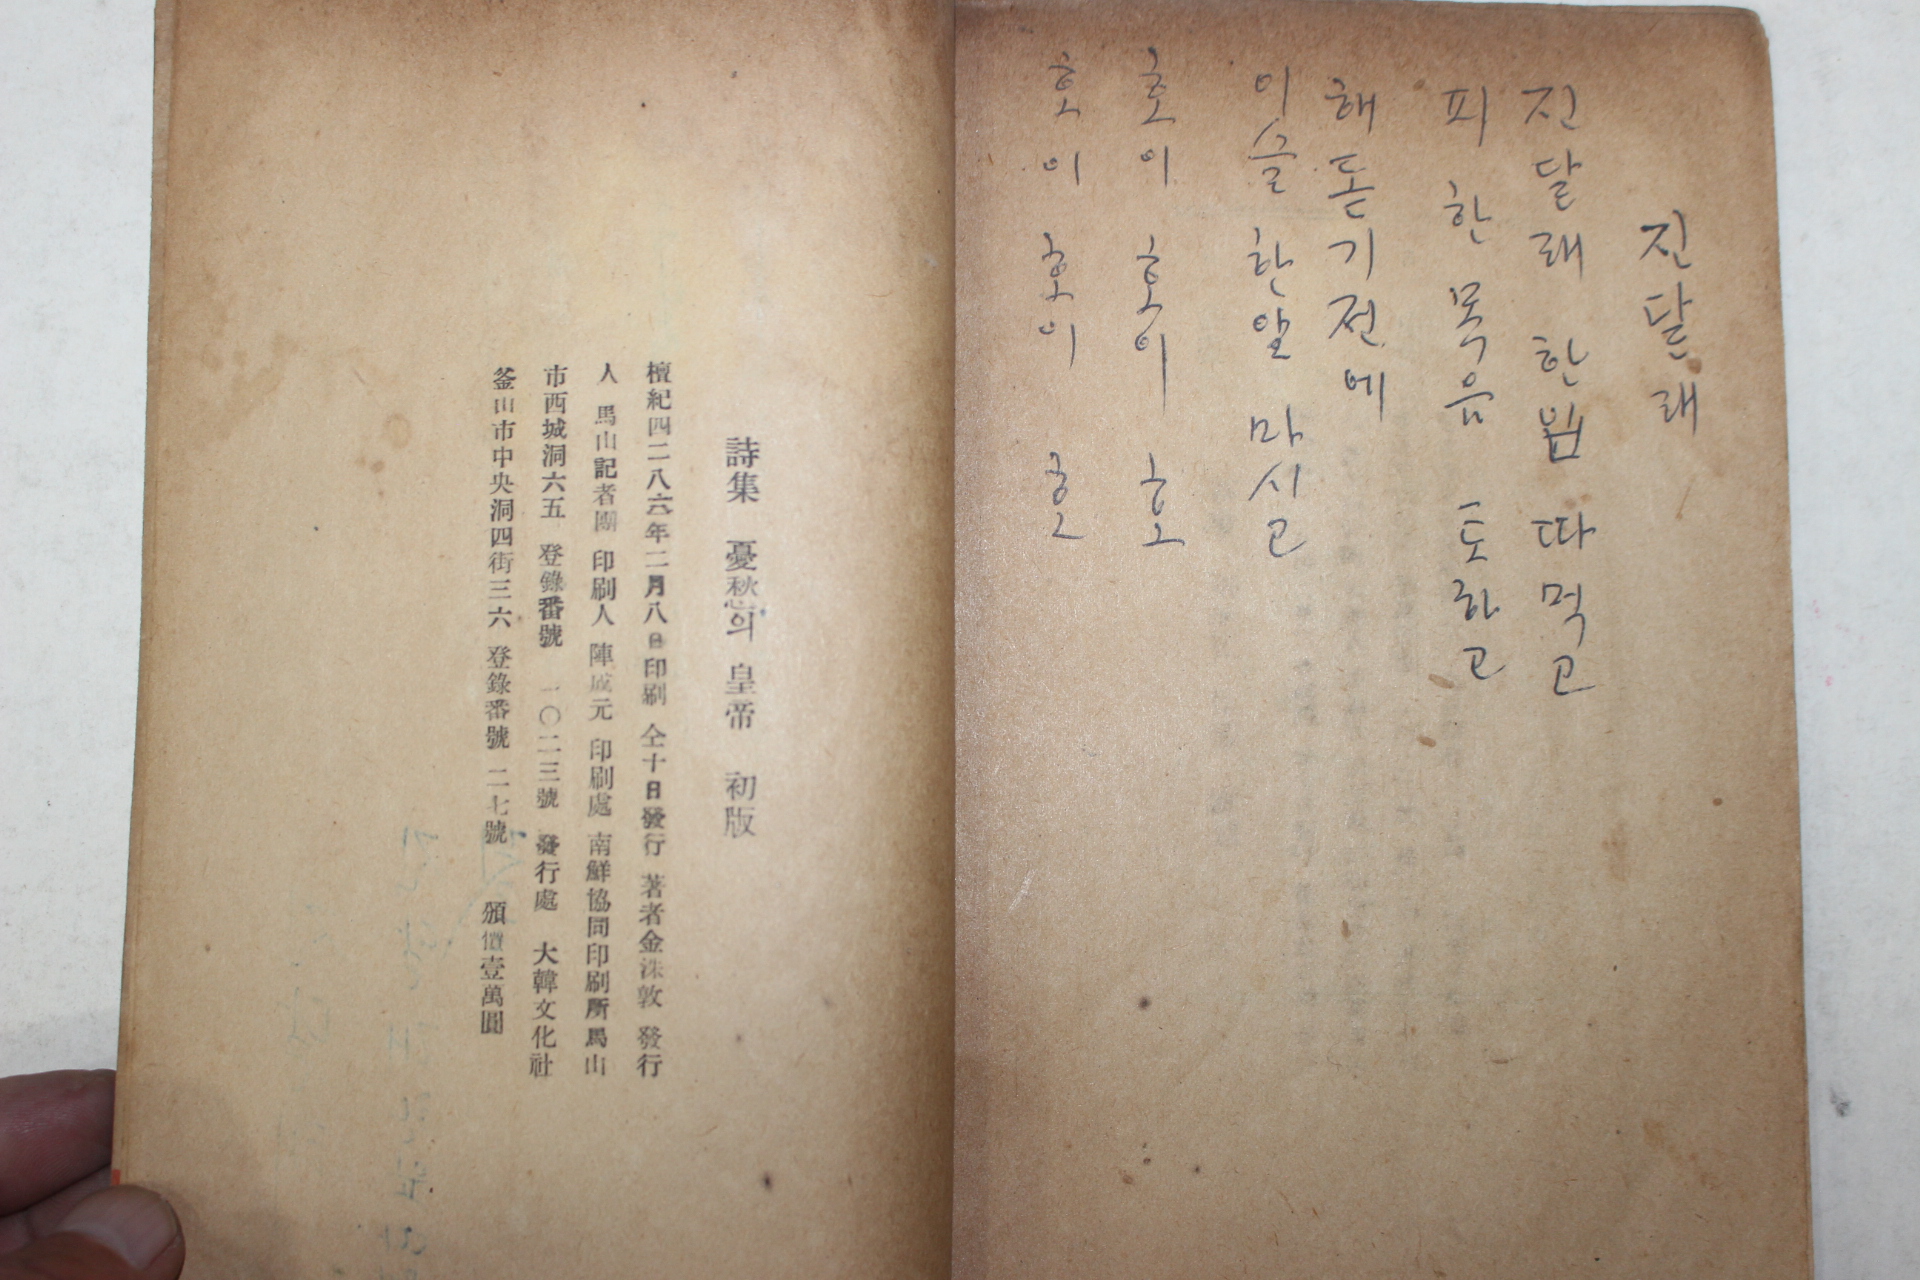 진달래
진달래 한닢 따먹고
피 한 목음 토하고
해 돋기전에
이슬 한알 마시고
호이 호이 호
호이 호이 호
詩集 憂愁의 皇帝 初版
檀紀四二八六年二月八日印刷 仝十日發行 著者金洙敦 發行
人 馬山記者團 印刷人 陣成元 印刷處 南鮮協同印刷所馬山
市西城洞六五 登錄番號 一〇二三號 發行處 大韓文化社
釜山市中央洞四街三六 登錄番號 二七號 頒價壹萬圓